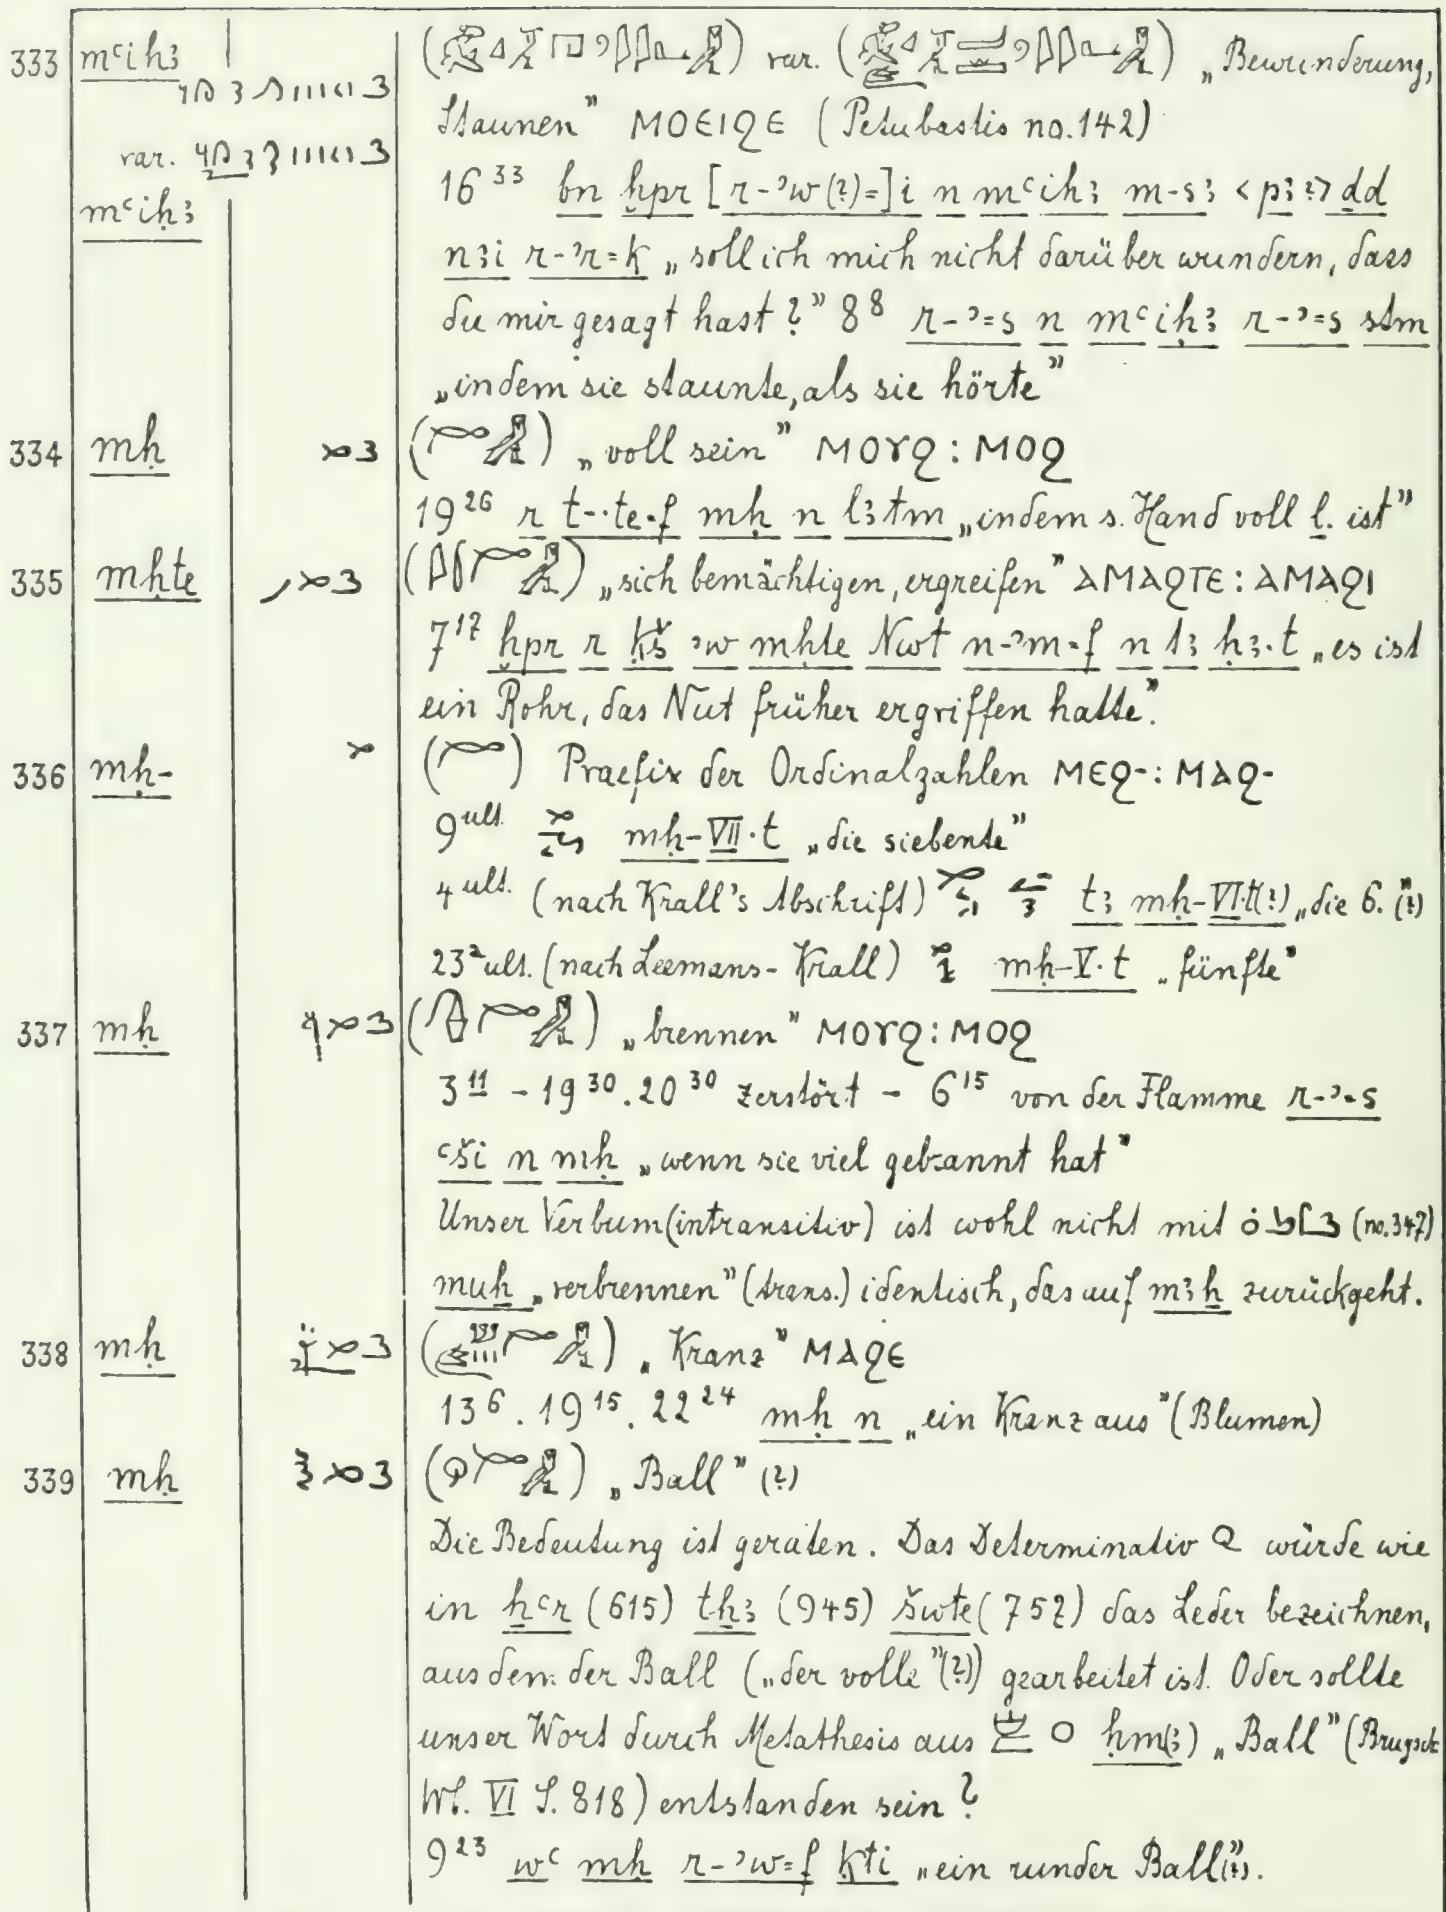 333 mꜥihꜣ ( ) var. ( ) „Bewunderung,
Staunen” ⲙⲟⲉⲓϩⲉ (Petubastis no. 142)
var.
mꜥiḥꜣ
16³³ bn ḫpr [r-ʾw(?)=]i n mꜥihꜣ m-sꜣ <pꜣ?> dd
nꜣi r-ʾr=k „soll ich mich nicht darüber wundern, dass
du mir gesagt hast?” 8⁸ r-ʾ=s n mꜥiḥꜣ r-ʾ=s stm
„indem sie staunte, als sie hörte”
334 mḥ ( ) „voll sein” ⲙⲟⲩϩ : ⲙⲟϩ
19²⁶ r t-·te·f mḥ n lꜣtm „indem s. Hand voll l. ist”
335 mḥte ( ) „sich bemächtigen, ergreifen” ⲁⲙⲁϩⲧⲉ : ⲁⲙⲁϩⲓ
7¹⁷ ḫpr r ḳš ʾw mḥte Nwt n-ʾm=f n tꜣ ḥꜣ·t „es ist
ein Rohr, das Nut früher ergriffen hatte”.
336 mḥ- ( ) Praefix der Ordinalzahlen ⲙⲉϩ- : ⲙⲁϩ-
9 ult. mḥ-VII·t „die siebente”
4 ult. (nach Krall's Abschrift) tꜣ mḥ-VI·t(?) „die 6. (?)”
23 ² ult. (nach Leemans-Krall) mḥ-V·t „fünfte”
337 mḥ ( ) „brennen” ⲙⲟⲩϩ : ⲙⲟϩ
3¹¹ - 19³⁰. 20³⁰ zerstört - 6¹⁵ von der Flamme r-ʾ=s
ꜥši n mḥ „wenn sie viel gebrannt hat”
Unser Verbum (intransitiv) ist wohl nicht mit (no. 347)
muḫ „verbrennen” (trans.) identisch, das auf mꜣḫ zurückgeht.
338 mḥ ( ) „Kranz” ⲙⲁϩⲉ
13⁶. 19¹⁵. 22²⁴ mḥ n „ein Kranz aus” (Blumen)
339 mḥ ( ) „Ball” (?)
Die Bedeutung ist geraten. Das Determinativ würde wie
in ẖꜥr (615) tḥꜣ (945) šwte (752) das Leder bezeichnen,
aus dem der Ball („der volle” (?)) gearbeitet ist. Oder sollte
unser Wort durch Metathesis aus ḥm(ꜣ) „Ball” (Brugsch
Wb. VI S. 818) entstanden sein?
9²³ wꜥ mḥ r-ʾw=f ḳti „ein runder Ball (?)”.